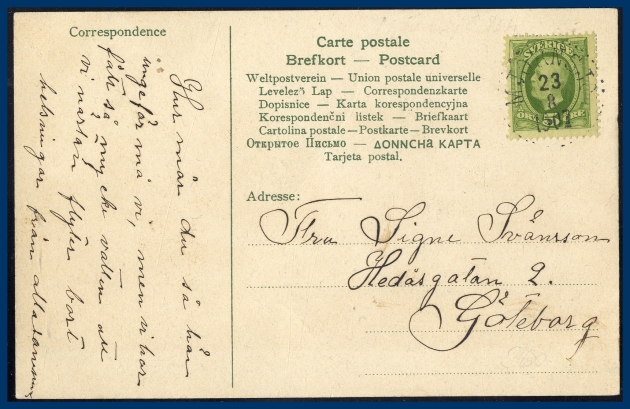 Correspondence
Hur mår du så här
ungefär må vi, men vi har
fått så mycke vatten att
vi nästan flyter bort
helsningar från alla
Carte postale
Brefkort — Postcard
Weltpostverein — Union postale universelle
Levelez Lap — Correspondenzkarte
Dopisnice — Karta korespondencyjna
Korespondenční lístek — Briefkaart
Cartolina postale — Postkarte — Brevkort
Открытое Письмо — ΔΟΝΝCHa КАРТА
Tarjeta postal.
SVERIGE
23
8
1907
Adresse:
Fru Signe Svänsson
Hedåsgatan 2.
Göteborg